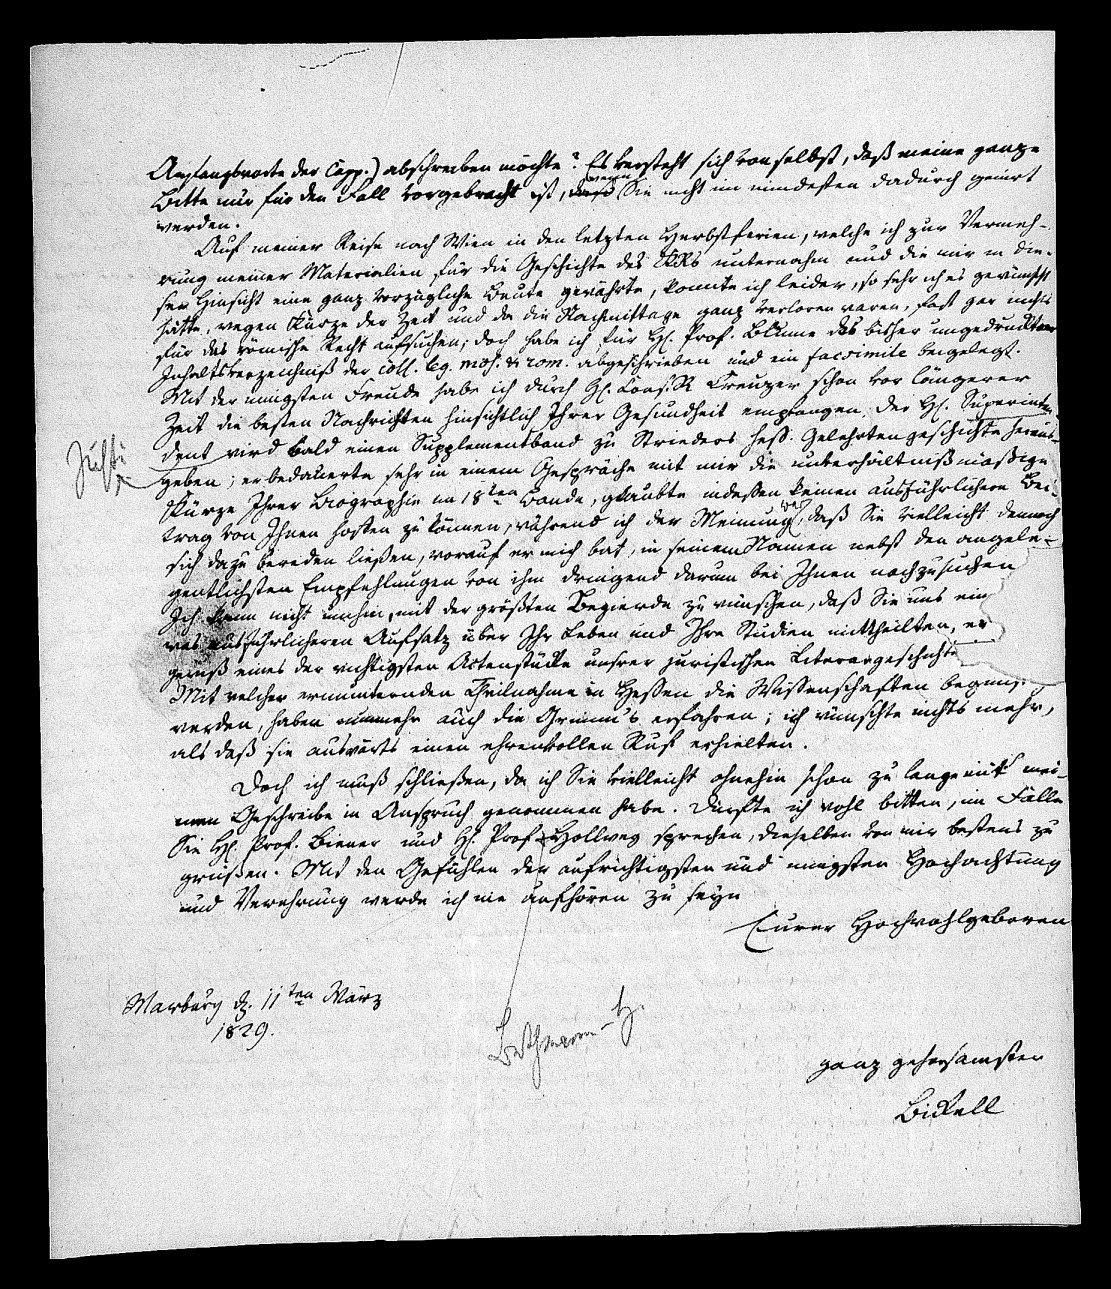 Anfangsworte der Capp.) abschreiben möchte? Es versteht sich von selbst, daß meine ganze
Bitte nur für den Fall vorgebracht ist, wenn Sie nicht im mindesten dadurch genirt
werden.
Auf meiner Reise nach Wien in den letzten Herbstferien, welche ich zur Vermeh-
rung meiner Materialien für die Geschichte des KRs unternahm und die mir in die-
ser Hinsicht eine ganz vorzügliche Beute gewährte, konnte ich leider, so sehr ich es gewünscht
hätte, wegen Kürze der Zeit und da die Nachmittage ganz verloren waren, fast gar nichts
für das römische Recht aufsuchen; doch habe ich für H. Prof. Blume das bisher ungedruckte
Inhaltsverzeichniß der coll. leg. mos. & rom. abgeschrieben und ein facsimile beigelegt.
Mit der innigsten Freude habe ich durch H. Cons. R. Creuzer schon vor längerer
Zeit die besten Nachrichten hinsichtlich Ihrer Gesundheit empfangen. Der H. Superinten-
dent wird bald einen Supplementband zu Strieders hess. Gelehrtengeschichte heraus-
Justi
geben; er bedauerte sehr in einem Gespräche mit mir die unverhältnißmäßige
Kürze Ihrer Biographie im 18ten Bande, glaubte indessen keinen ausführlicheren Bei-
trag von Ihnen hoffen zu können, während ich der Meinung war, daß Sie vielleicht dennoch
sich dazu bereden ließen, worauf er mich bat, in seinem Namen nebst den angele-
gentlichsten Empfehlungen von ihm dringend darum bei Ihnen nachzusuchen
Ich kann nicht umhin, mit der größten Begierde zu wünschen, daß Sie uns ein
ausführlicheren Aufsatz über Ihr Leben und Ihre Studien mittheilten,
gewiß eines der wichtigsten Actenstücke unsrer juristischen Literärgeschichte
Mit welcher ermunternden Theilnahme in Hessen die Wissenschaften
werden, haben nunmehr auch die Grimm's erfahren; ich wünschte nichts mehr,
als daß sie auswärts einen ehrenvollen Ruf erhielten.
Doch ich muß schließen, da ich Sie vielleicht ohnehin schon zu lange mit mei-
nem Geschreibe in Anspruch genommen habe. Dürfte ich wohl bitten, im Falle
Sie H. Prof. Biener und H. Prof. Hollweg sprechen, dieselben von mir bestens zu
grüßen. Mit den Gefühlen der aufrichtigsten und innigsten Hochachtung
und Verehrung werde ich nie aufhören zu seyn
Eurer Hochwohlgeboren
Marburg d. 11ten März
1829.
Bethmann-H.
ganz gehorsamster
Bickell